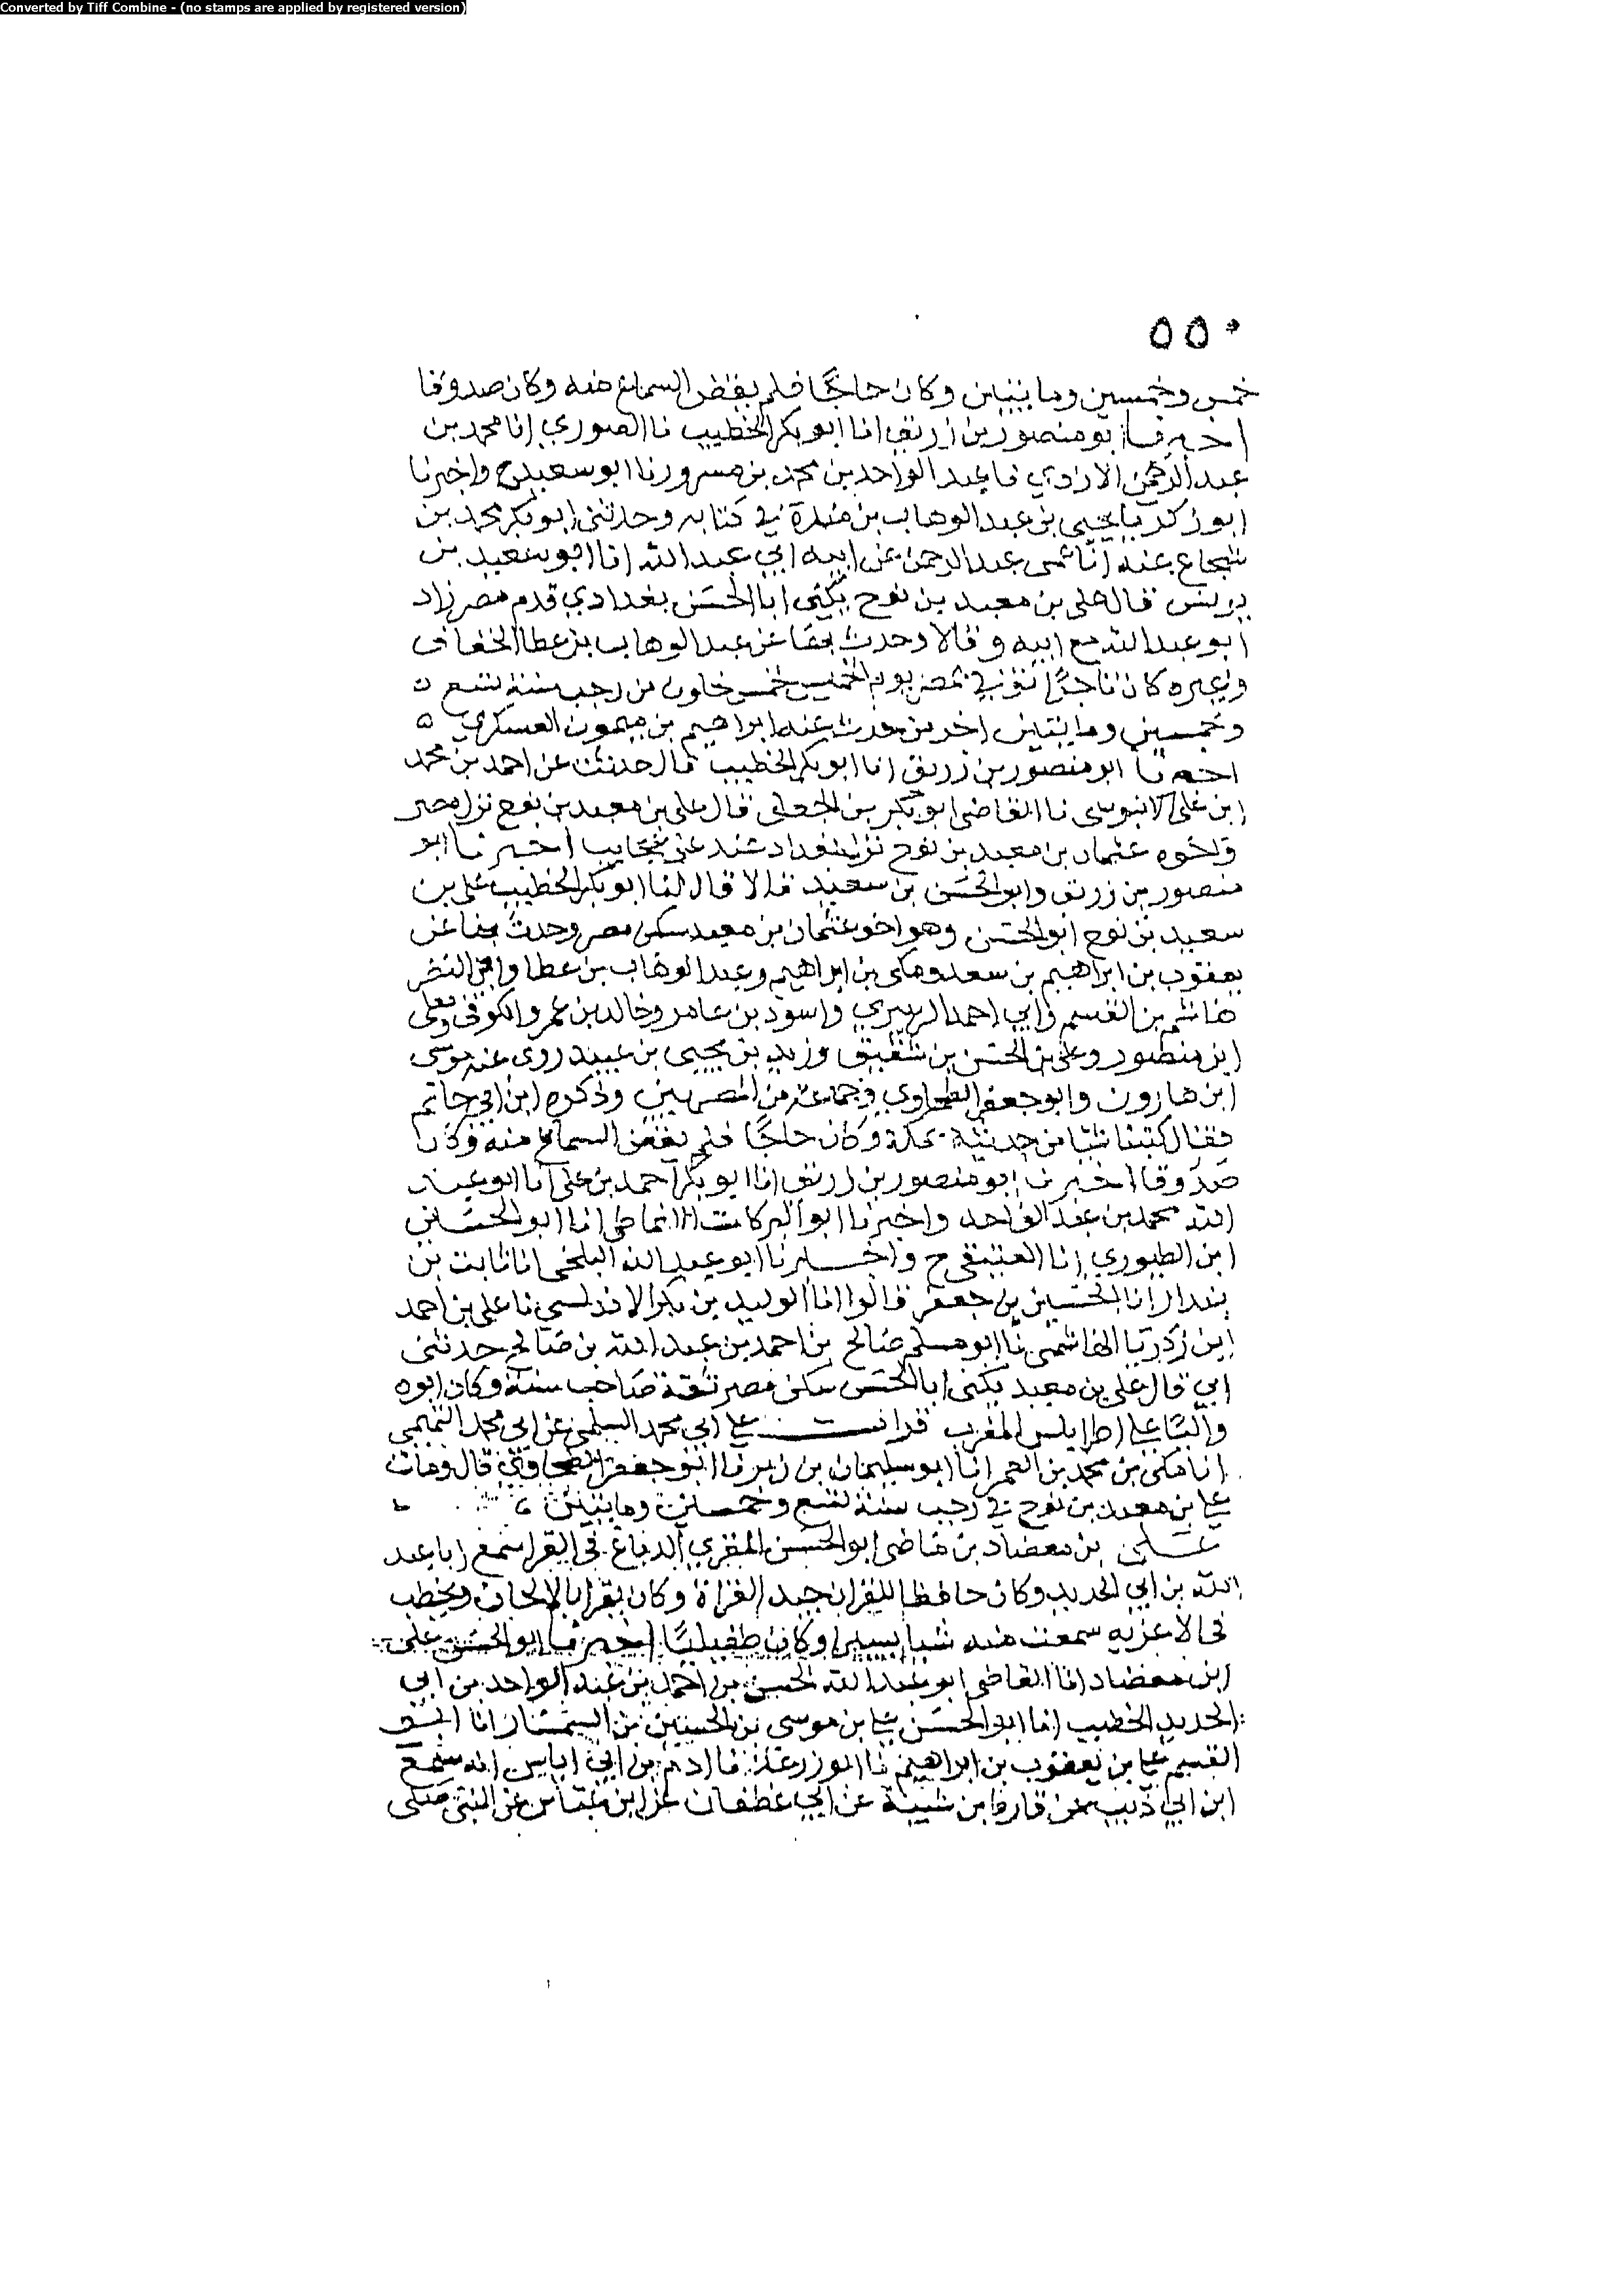 Converted by Tiff Combine - (no stamps are applied by registered version)
٥٥٠
خمس وخمسين ومايتين وكان حاجًا فلم يقض السماع منه وكان صدوقا
اخبرنا ابو منصور بن زريق انا ابو بكر الخطيب نا الصوري انا محمد بن
عبد الرحمن الازدي نا عبد الواحد بن محمد بن مسرور نا ابو سعيد ح واخبرنا
ابو زكريا يحيى بن عبد الوهاب بن مندة في كتابه وحدثني ابو بكر محمد بن
شجاع عنه انا عمى عبد الرحمن عن ابيه ابي عبد الله انا ابو سعيد بن
يونس قال على بن معبد بن نوح يكنى ابا الحسن بغدادي قدم مصر زاد
ابو عبد الله مع ابيه وقالا وحدث بها عن عبد الوهاب بن عطا الخفاف
وغيره كان تاجرًا توفي بمصر يوم الخميس لخمس خلون من رجب سنة تسع
وخمسين ومايتين اخر من حدث عنه ابراهيم بن ميمون العسكري
اخبرنا ابو منصور بن زريق انا ابو بكر الخطيب قال حدثت عن احمد بن محمد
ابن على الابنوسى نا القاضى ابو بكر بن الجعابى قال على بن معبد بن نوح نزل مصر
واخوه عثمان بن معبد بن نوح نزل بغداد عجايب اخبرنا ابو
منصور بن زريق وابو الحسن بن سعيد قالا قال لنا ابو بكر الخطيب على بن
سعيد بن نوح ابو الحسن وهو اخو عثمان بن معبد سكن مصر وحدث بها عن
يعقوب بن ابراهيم بن سعد ومكى بن ابراهيم وعبد الوهاب بن عطا وابي النضر
هاشم بن القسم وابي احمد الزبيري واسود بن عامر وخالد بن عمرو الكوفى ومعلى
ابن منصور وعلى بن الحسن بن شقيق وزيد بن يحيى بن عبيد روى عنه موسى
ابن هارون وابو جعفر الطحاوي وجماعة من المصريين وذكره ابن ابي حاتم
فقال كتبنا شيًا من حديثه بمكة وكان حاجًا فلم يقض السماع منه وكان
صدوقا اخبرنا ابو منصور بن زريق انا ابو بكر احمد بن على انا ابو عبد
الله محمد بن عبد الواحد واخبرنا ابو البركات الانماطى انا ابو الحسين
ابن الطيوري انا العتيقى ح واخبرنا ابو عبد الله البلخى انا ثابت بن
بندار انا الحسين بن جعفر قالوا انا الوليد بن بكر الاندلسي نا على بن احمد
ابن زكريا الهاشمى نا ابو مسلم صالح بن احمد بن عبد الله بن صالح حدثنى
ابي قال على بن معبد يكنى ابا الحسن سكن مصر ثقة صاحب سنة وكان ابوه
واليًا على اطرابلس المغرب قرات على ابي محمد السلمى عن ابي محمد التميمى
انا مكى بن محمد بن الغمر انا ابو سليمان بن زبر نا ابو جعفر الطحاوي قال ومات
على بن معبد بن نوح في رجب سنة تسع وخمسين ومايتين
على بن معضاد بن ماضى ابو الحسن المقري الدباغ سمع ابا عبد
الله بن ابي الحديد وكان حافظا للقران جيد القراة وكان يقرا بالالحان ويخطب
فى الاعزيه سمعت منه شيا يسيرا وكان طفيليًا اخبرنا ابو الحسن على
ابن معضاد انا القاضى ابو عبد الله الحسن بن احمد بن عبد الواحد بن ابي
الحديد الخطيب انا ابو الحسن على بن موسى بن الحسين بن السمسار انا ابو
القسم على بن يعقوب بن ابراهيم نا ابو زرعة نا ادم بن ابي اياس انه سمع
ابن ابي ذيب عن قارظ بن شيبة عن ابي غطفان عن ابن عباس عن النبي صلى